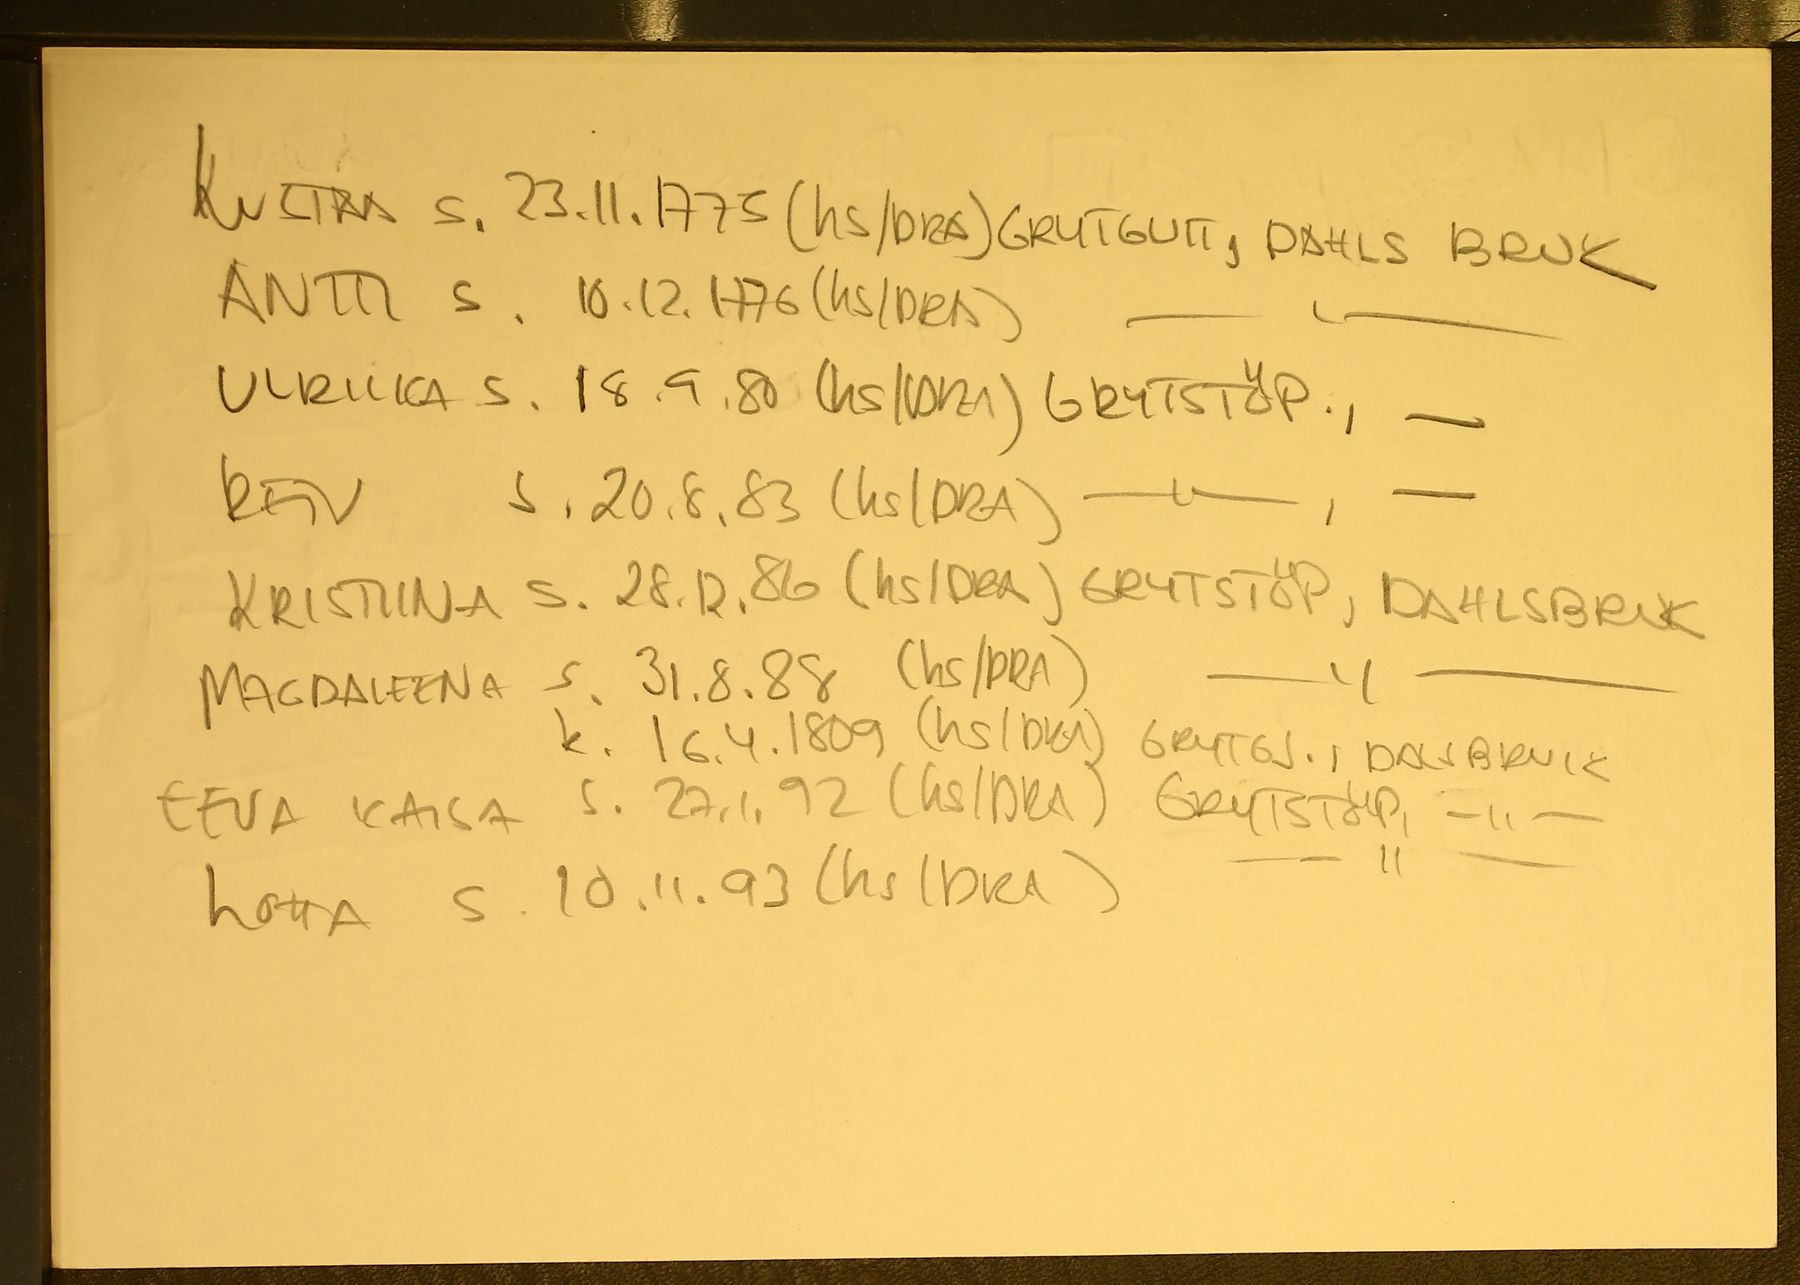 KUSTAA s. 23.11.1775 (hs/DRA) GRYTGUTT, DAHLS BRUK
ANTTI s. 10.12.1776 (hs/DRA) — " —
ULRIIKKA s. 18.9.80 (hs/DRA) GRYTSTÖP., —
s. 20.8.83 (hs/DRA) — " —, —
KRISTIINA s. 28.12.86 (hs/DRA) GRYTSTÖP, DAHLSBRUK
MAGDALEENA s. 31.8.88 (hs/DRA) — " —
k. 16.4.1809 (hs/DRA) DALSBRUK
EEVA KAISA s. 27.1.92 (hs/DRA) GRYTSTÖP, — " —
LOTTA s. 10.11.93 (hs/DRA) — " —